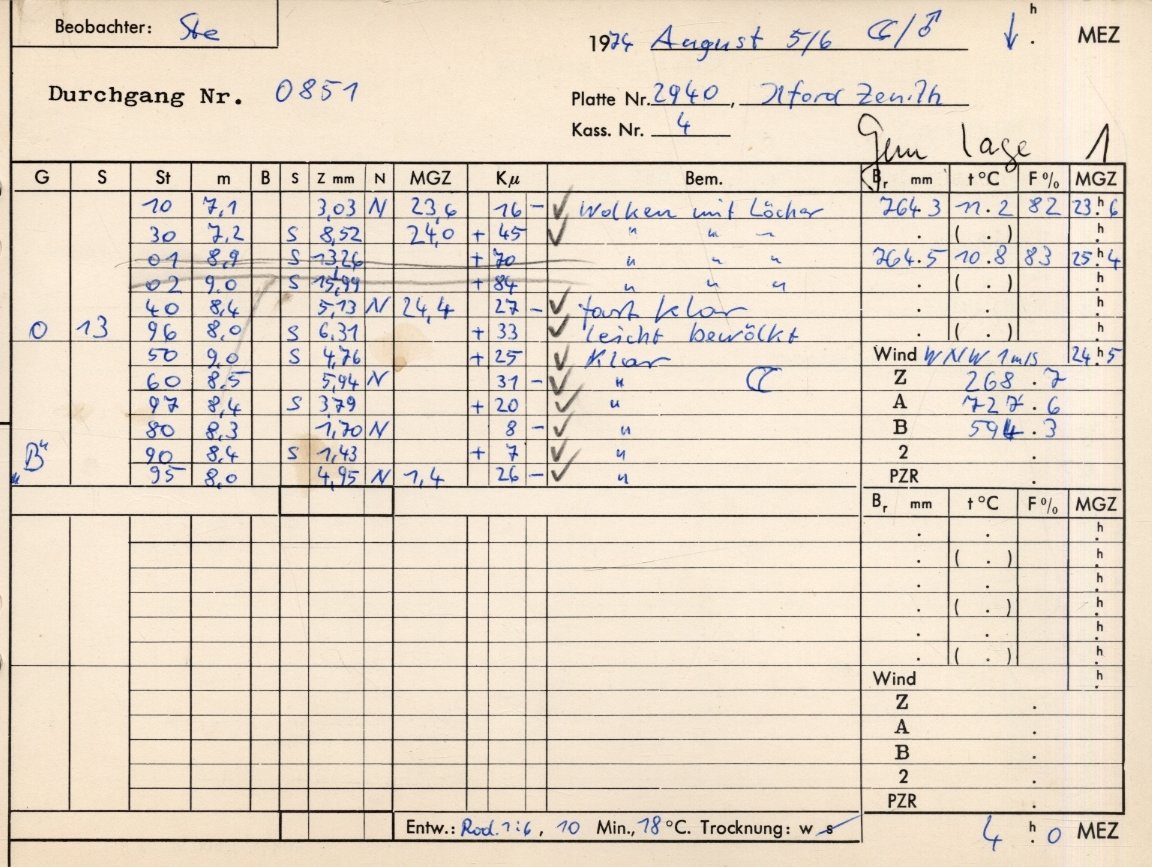 Beobachter: Ste
1974 August 5/6 ☾/♂ ↓ h . MEZ
Durchgang Nr. 0851
Platte Nr. 2940, Ilford Zenith
Kass. Nr. 4
Gem lage 1
G S St m B S Z mm N MGZ Kμ Bem. Br mm t°C F% MGZ
10 7,1 3,03 N 23,6 16 - ✓ Wolken mit Löcher 764.3 11.2 82 23.h6
30 7,2 S 8,52 24,0 + 45 ✓ " " " . ( . ) .h
01 8,9 S 13,26 + 70 " " " 764.5 10.8 83 25.h4
02 9,0 S 15,99 + 84 " " " . ( . ) .h
40 8,4 5,13 N 24,4 27 - ✓ fast klar . . .h
O 13 96 8,0 S 6,31 + 33 ✓ leicht bewölkt . ( . ) .h
50 9,0 S 4,76 + 25 ✓ Klar Wind WNW 1m/s 24.h5
60 8,5 5,94 N 31 - ✓ " ☾ Z 268.7
97 8,4 S 3,79 + 20 ✓ " A 727.6
80 8,3 1,70 N 8 - ✓ " B 594.3
"B" 90 8,4 S 1,43 + 7 ✓ " 2 .
95 8,0 4,95 N 1,4 26 - ✓ " PZR .
Br mm t°C F% MGZ
. . .h
. ( . ) .h
. . .h
. ( . ) .h
. . .h
. ( . ) .h
Wind .h
Z .
A .
B .
2 .
PZR .
Entw.: Rod. 1:6, 10 Min., 18 °C. Trocknung: w s
4 h 0 MEZ